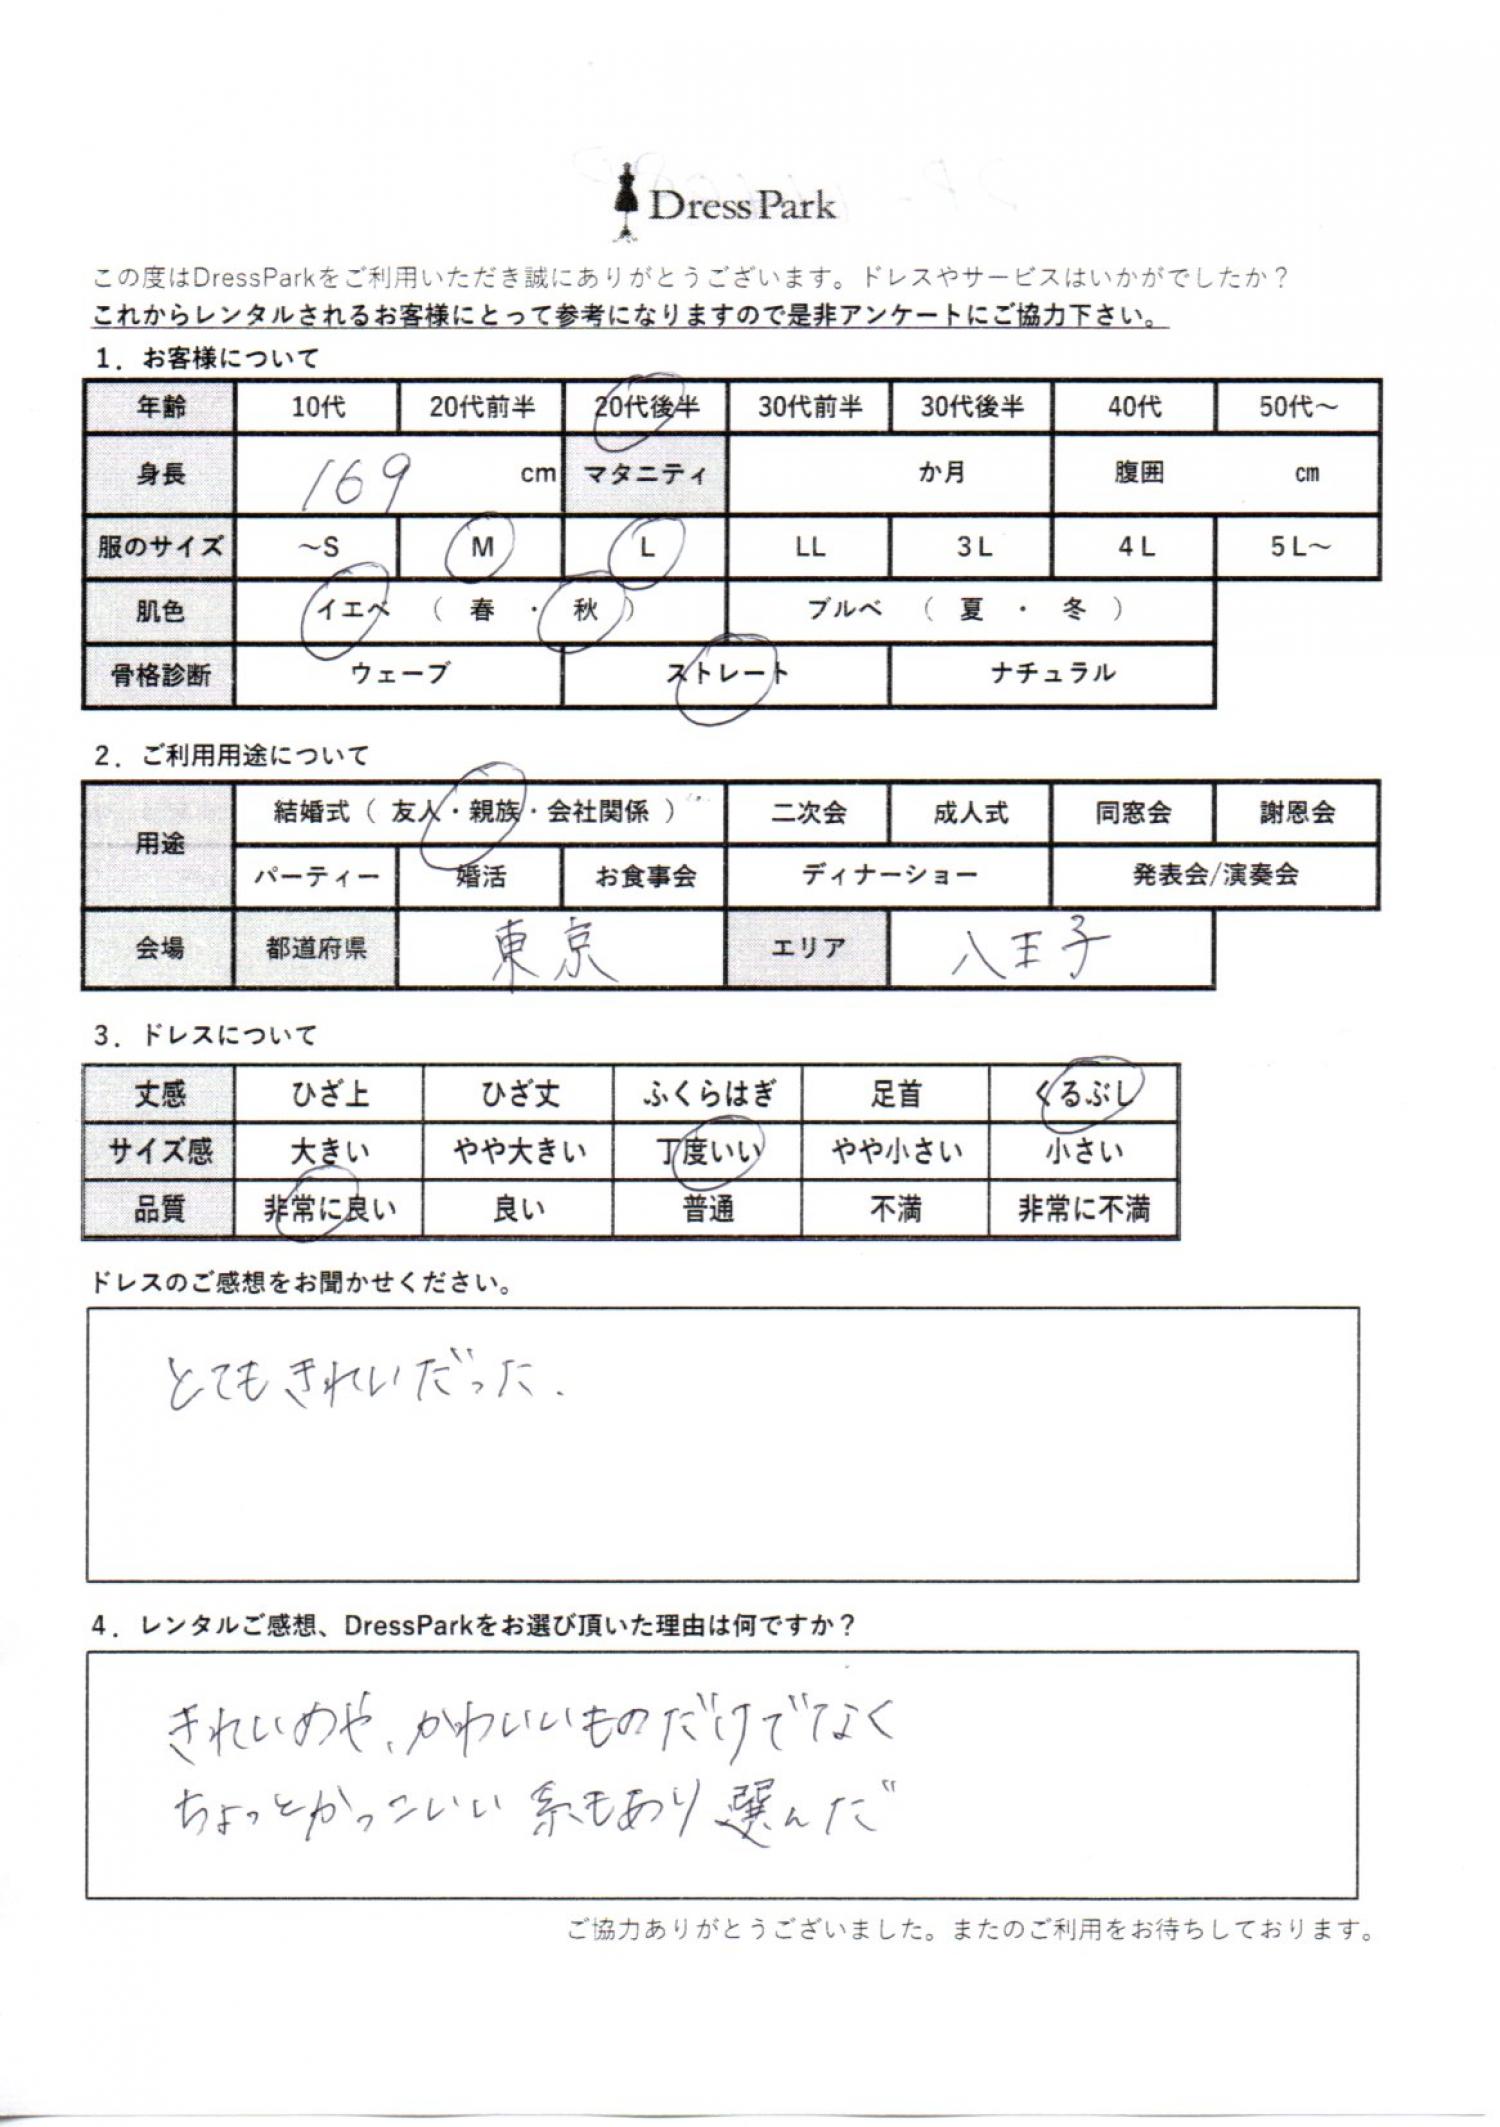 DressPark
この度はDressParkをご利用いただき誠にありがとうございます。ドレスやサービスはいかがでしたか？
これからレンタルされるお客様にとって参考になりますので是非アンケートにご協力下さい。
1．お客様について
年齢 10代 20代前半 20代後半 30代前半 30代後半 40代 50代～
身長 169 cm マタニティ か月 腹囲 cm
服のサイズ ～S M L LL 3L 4L 5L～
肌色 イエベ （ 春 ・ 秋 ） ブルベ （ 夏 ・ 冬 ）
骨格診断 ウェーブ ストレート ナチュラル
2．ご利用用途について
用途 結婚式（ 友人・親族・会社関係 ） 二次会 成人式 同窓会 謝恩会
パーティー 婚活 お食事会 ディナーショー 発表会/演奏会
会場 都道府県 東京 エリア 八王子
3．ドレスについて
丈感 ひざ上 ひざ丈 ふくらはぎ 足首 くるぶし
サイズ感 大きい やや大きい 丁度いい やや小さい 小さい
品質 非常に良い 良い 普通 不満 非常に不満
ドレスのご感想をお聞かせください。
とてもきれいだった.
4．レンタルご感想、DressParkをお選び頂いた理由は何ですか？
きれいめや、かわいいものだけでなく
ちょっとかっこいい系もあり選んだ
ご協力ありがとうございました。またのご利用をお待ちしております。